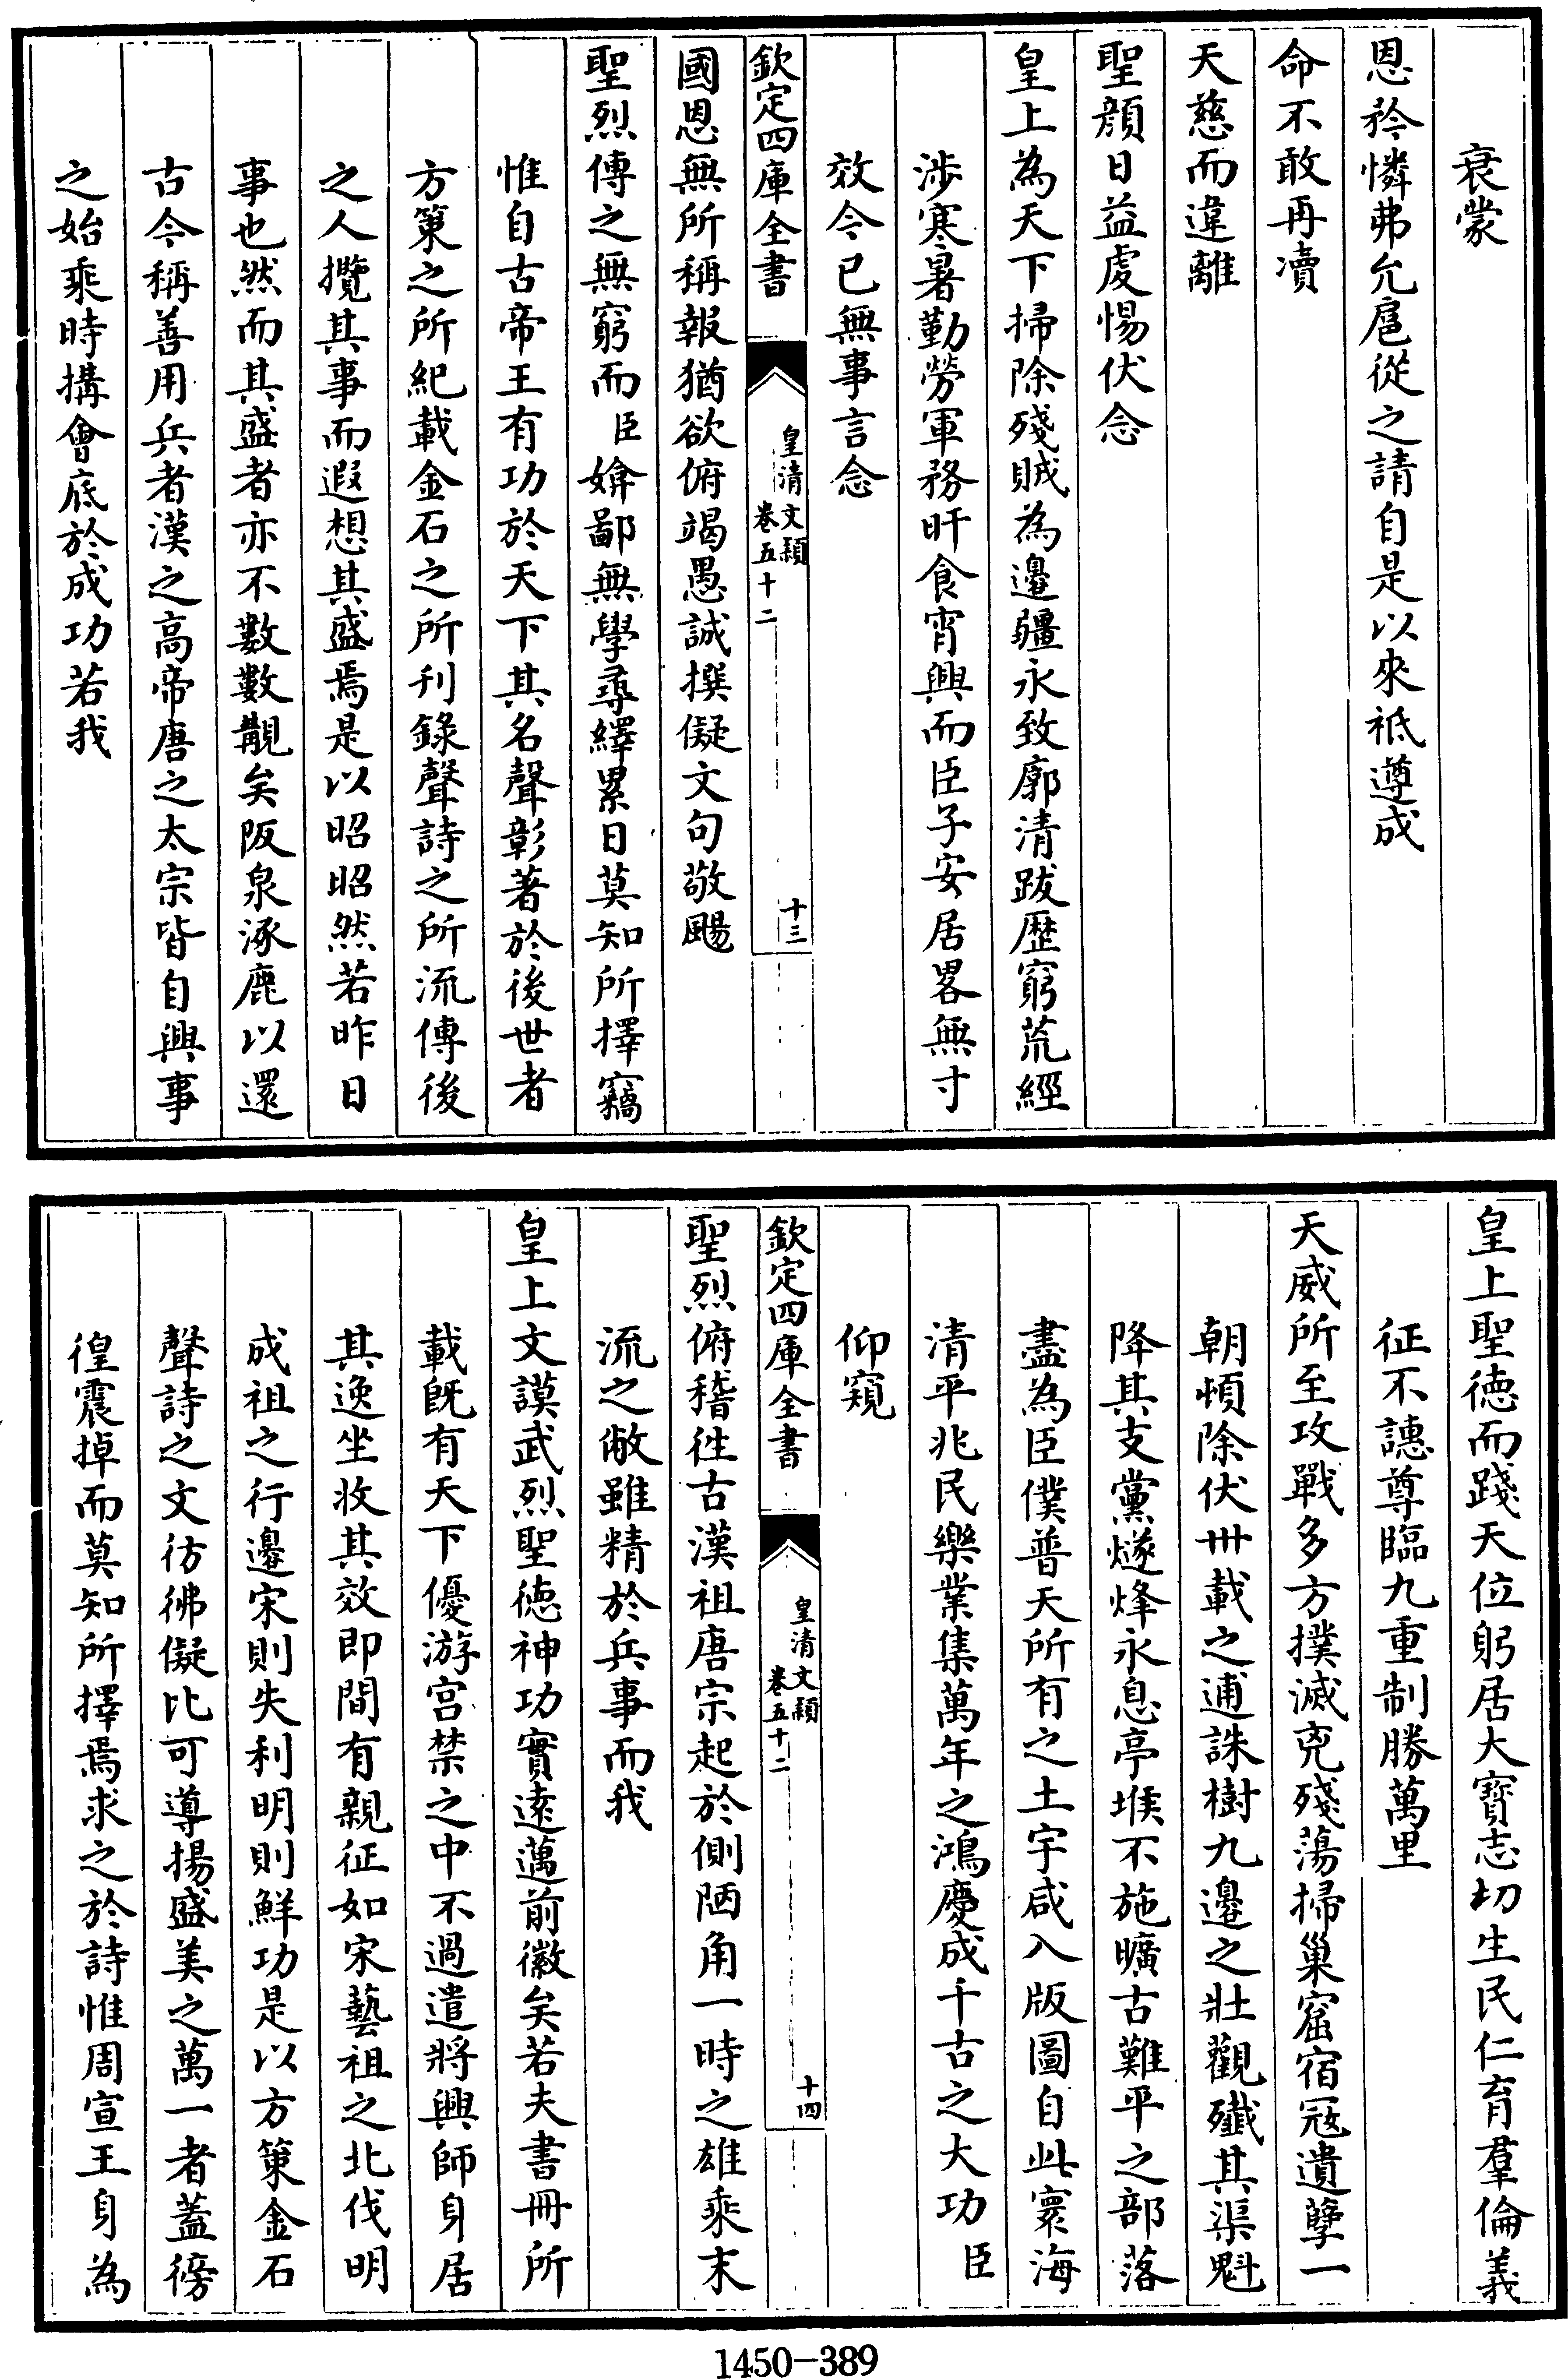 衰蒙
恩矜憐弗允扈從之請自是以來祗遵成
命不敢再凟
天慈而違離
聖顔日益䖍惕伏念
皇上為天下掃除殘賊為邊疆永致廓清跋歴窮荒經
涉寒暑勤勞軍務旰食宵興而臣子安居畧無寸
效今已無事言念
欽定四庫全書
皇清文頴
卷五十二
十三
國恩無所稱報猶欲俯竭愚誠撰儗文句敬颺
聖烈傳之無窮而臣媕鄙無學尋繹累日莫知所擇竊
惟自古帝王有功於天下其名聲彰著於後世者
方䇿之所紀載金石之所刋錄聲詩之所流傳後
之人攬其事而遐想其盛焉是以昭昭然若昨日
事也然而其盛者亦不數數覩矣阪泉涿鹿以還
古今稱善用兵者漢之高帝唐之太宗皆自興事
之始乘時搆會底於成功若我
皇上聖德而踐天位躬居大寳志切生民仁育羣倫義
征不譓尊臨九重制勝萬里
天威所至攻戰多方撲滅兇殘蕩掃巢窟宿冦遺孽一
朝頓除伏卅載之逋誅樹九邊之壯觀殱其渠魁
降其支黨燧烽永息亭堠不施曠古難平之部落
盡為臣僕普天所有之土宇咸入版圖自此寰海
清平兆民樂業集萬年之鴻慶成千古之大功臣
仰窺
欽定四庫全書
皇清文頴
卷五十二
十四
聖烈俯稽徃古漢祖唐宗起於側陋角一時之雄乘末
流之敝雖精於兵事而我
皇上文謨武烈聖德神功實逺邁前徽矣若夫書冊所
載旣有天下優游宫禁之中不過遣將興師身居
其逸坐收其效即間有親征如宋藝祖之北伐明
成祖之行邊宋則失利明則鮮功是以方䇿金石
聲詩之文彷彿儗比可導揚盛美之萬一者蓋徬
徨震掉而莫知所擇焉求之於詩惟周宣王身為
1450-389